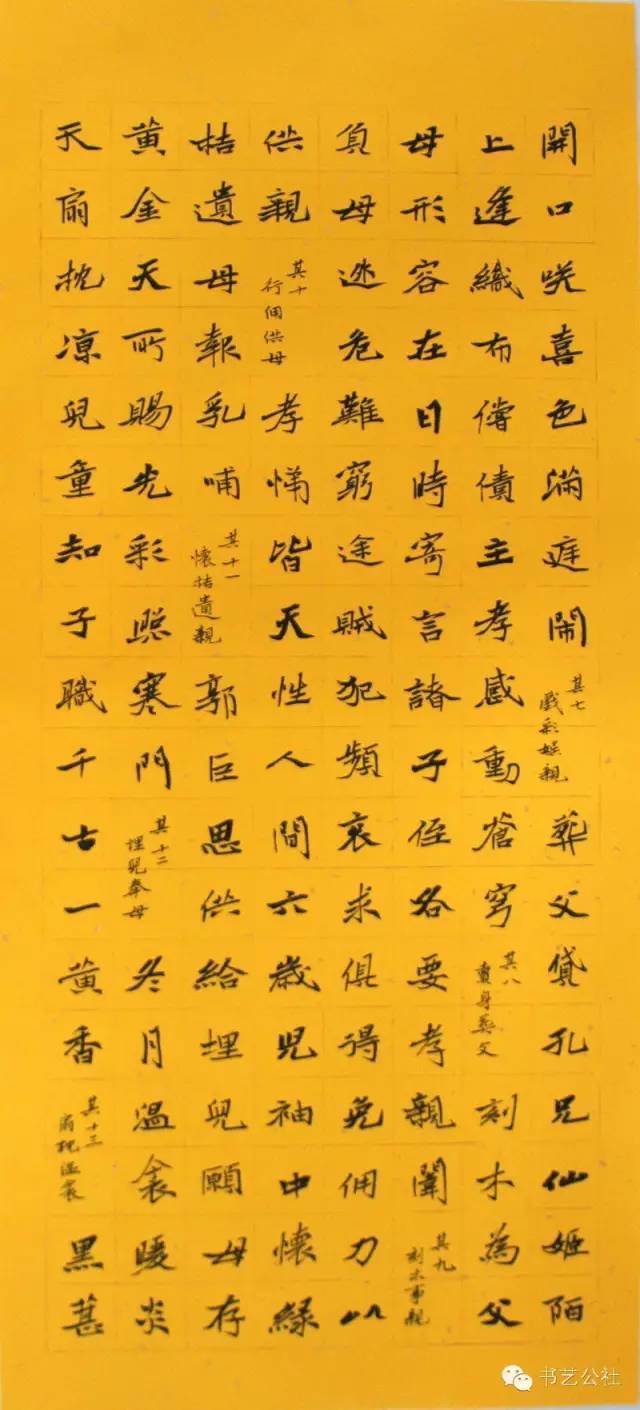 開口咲喜色滿庭鬧其七戲彩娛親葬父貸孔兄仙姬陌
上逢織布償債主孝感動蒼穹其八賣身葬父刻木為父
母形容在日時寄言諸子侄各要孝親聞其九刻木事親
負母逃危難窮途賊犯頻哀求俱得免佣力以
供親其十行佣供母孝悌皆天性人間六歲兒袖中懷綠
桔遺母報乳哺其十一懷桔遺親郭巨思供給埋兒願母存
黃金天所賜光彩照寒門其十二埋兒奉母冬月溫衾暖炎
天扇枕凉兒童知子職千古一黃香其十三扇枕溫衾黑葚
书艺公社